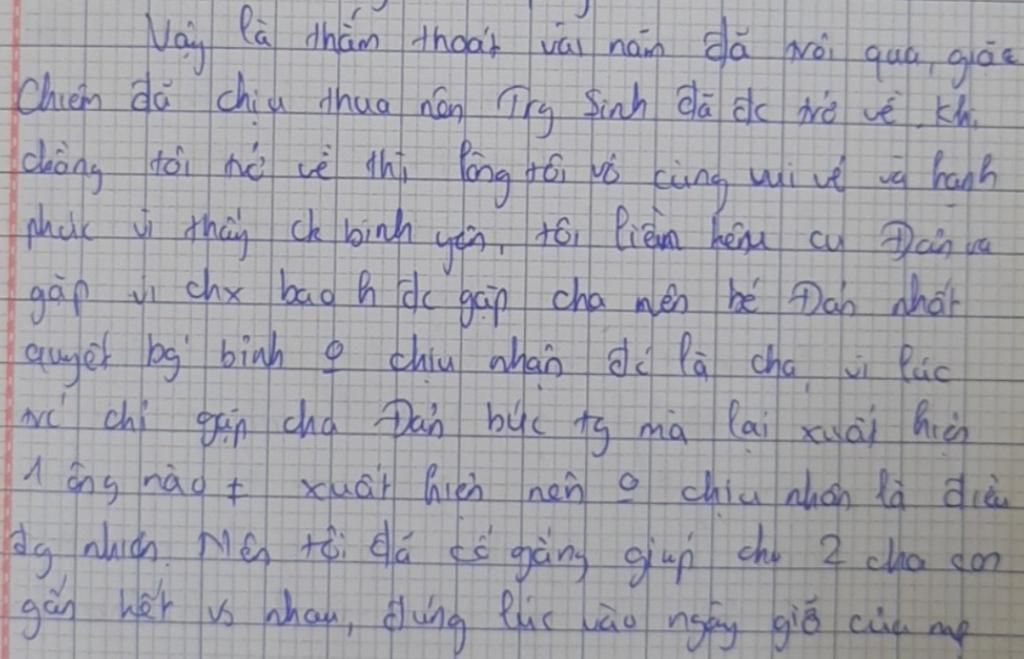 Vậy là thấm thoát vài năm đã trôi qua, giặc
Chiêm đã chịu thua nên Trg Sinh đã đc trở về. Kh
chồng tôi trở về thì lòng tôi vô cùng vui vẻ và hạnh
phúc vì thấy ck bình yên, tôi liền kêu cu Đản ra
gặp vì chx bao h đc gặp cha nên bé Đản nhất
quyết bg bỉnh 0 chịu nhận đó là cha, vì lúc
trc chỉ gặp cha Đản bức tg mà lại xuất hiện
1 ông nào + xuất hiện nên 0 chịu nhận là điều
đg nhiên. Nên tôi đã cố gắng giúp cho 2 cha con
gắn kết vs nhau, đúng lúc vào ngày giỗ của mẹ